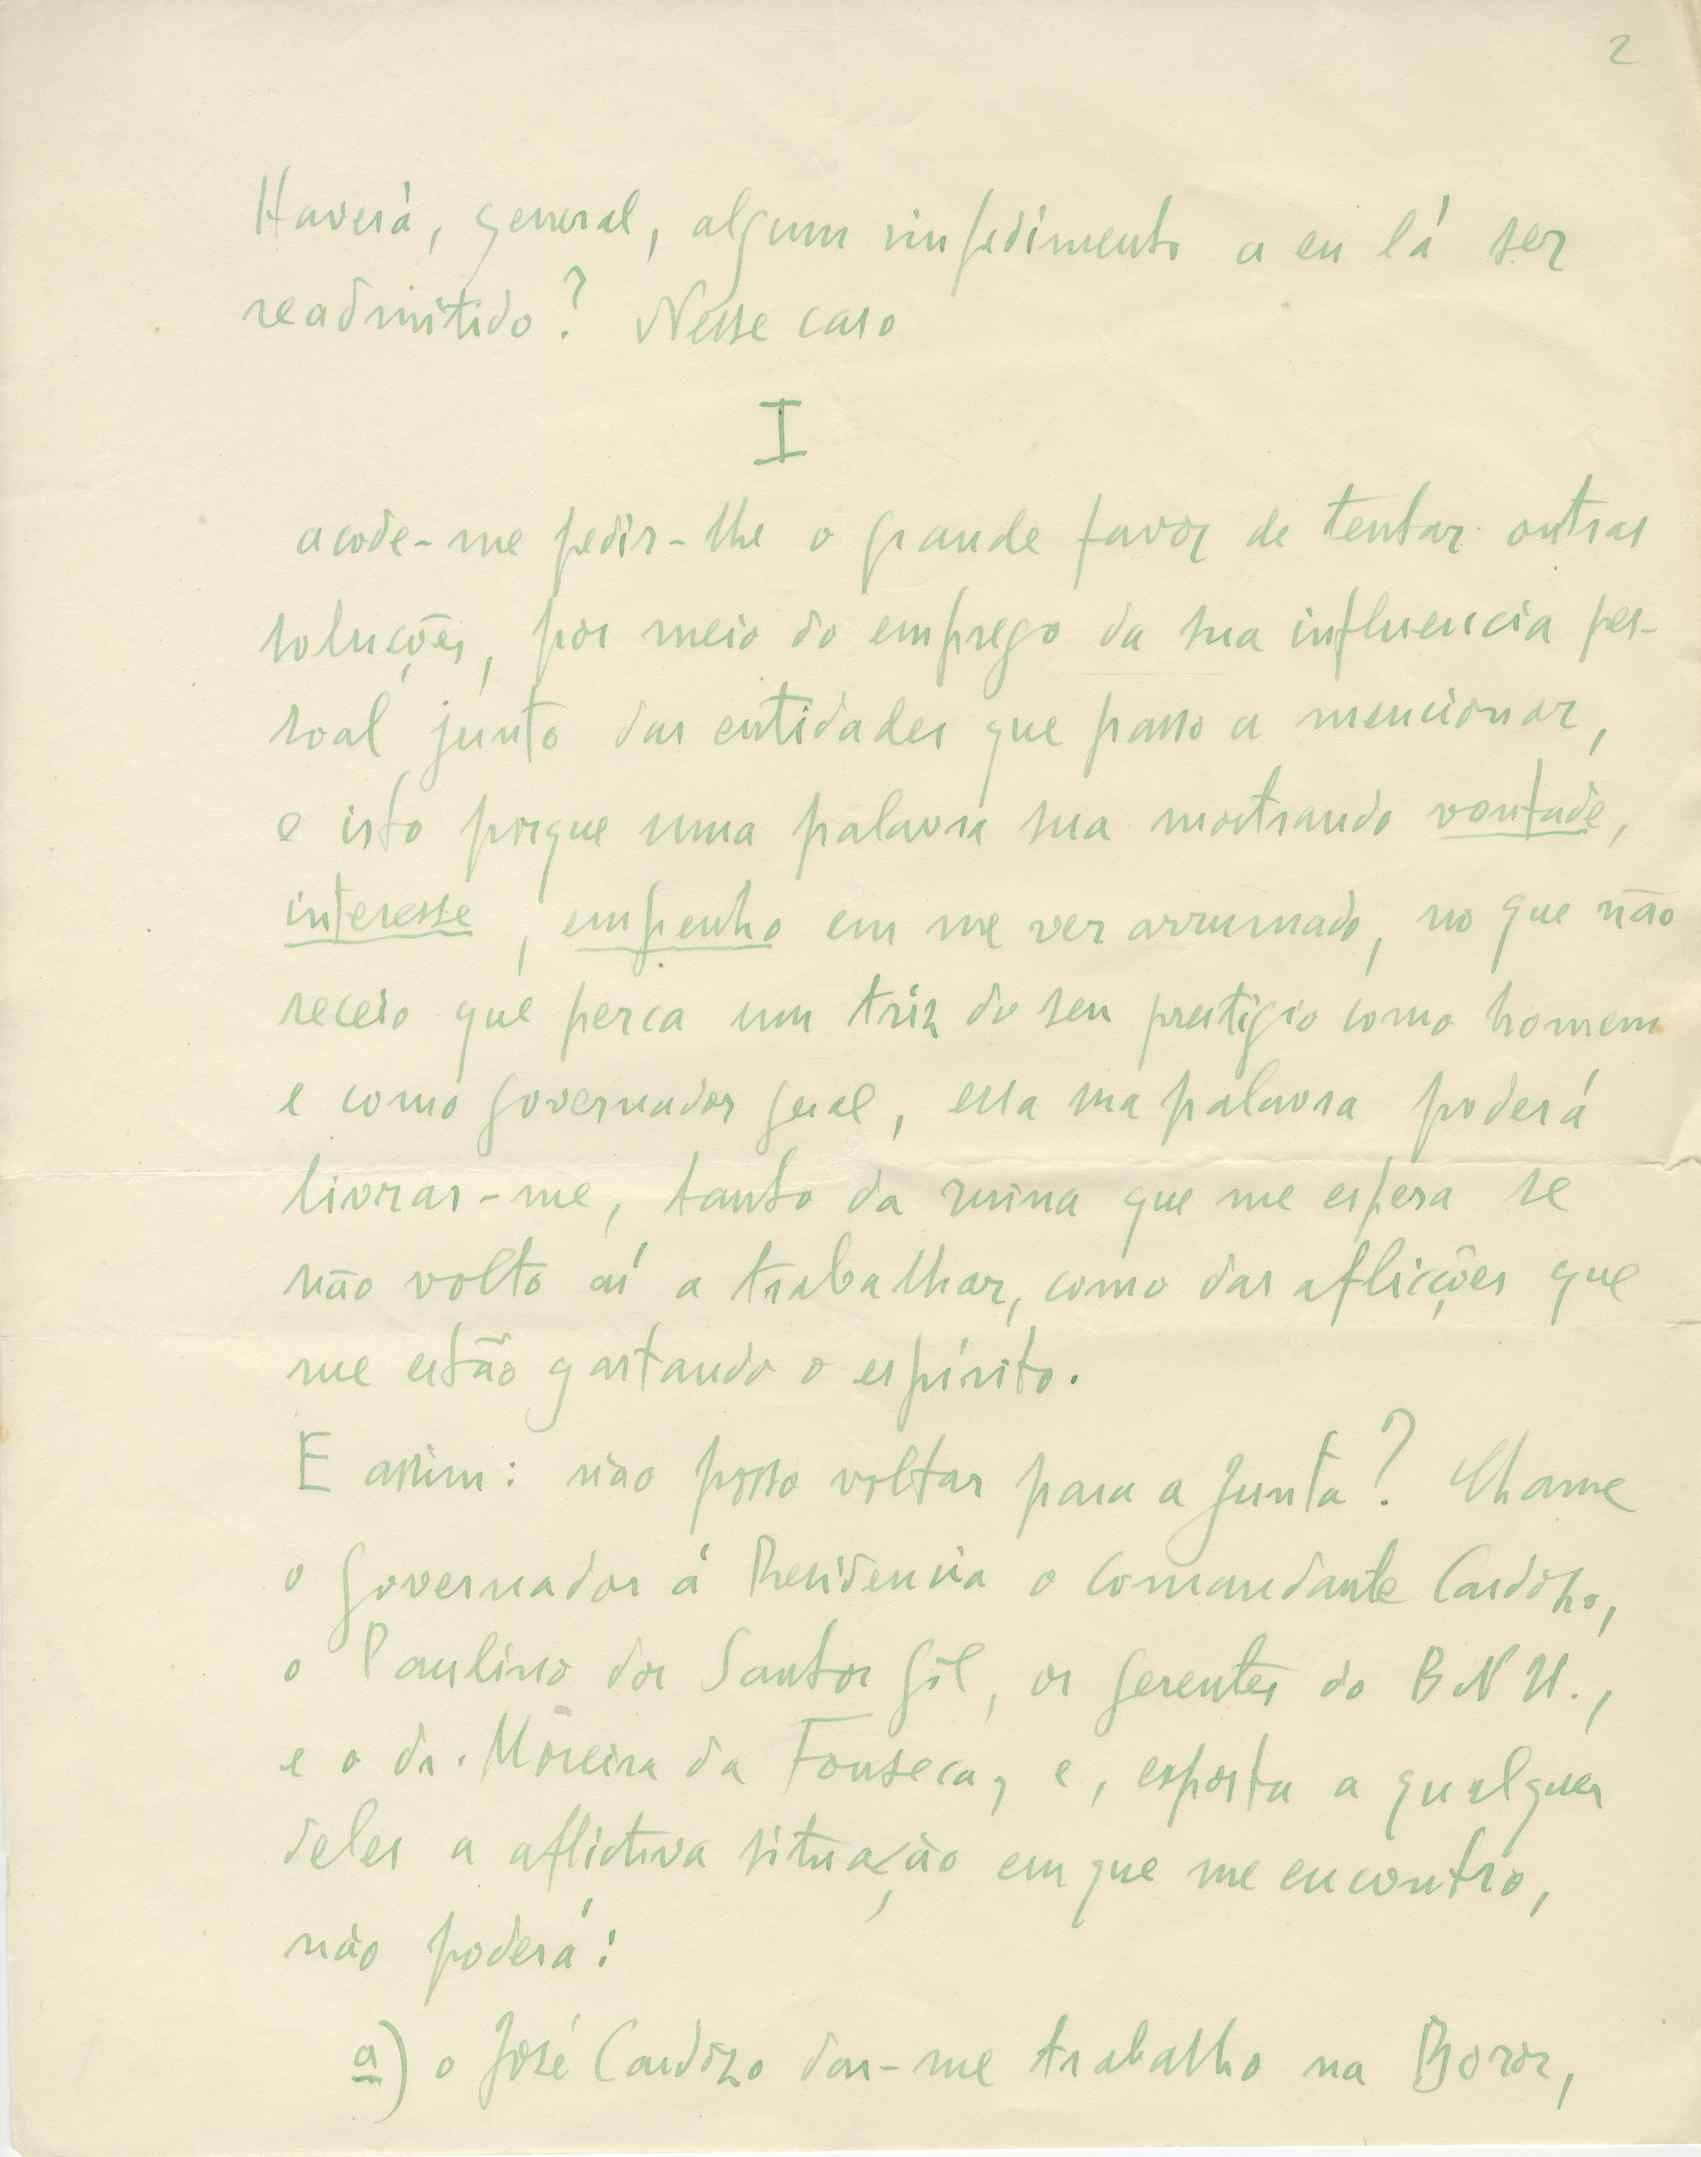 2
Haverá, general, algum impedimento a eu lá ser
readmitido? Nesse caso
I
acode-me pedir-lhe o grande favor de tentar outras
soluções, por meio do emprego da sua influencia pes-
soal junto das entidades que passo a mencionar,
e isto porque uma palavra sua mostrando vontade,
interesse, empenho em me ver arrumado, no que não
receio que perca um triz do seu prestigio como homem
e como governador geral, essa sua palavra poderá
livrar-me, tanto da ruina que me espera se
não volto aí a trabalhar, como das aflicções que
me estão gastando o espírito.
E assim: não posso voltar para a Junta? Chame
o Governador á Residencia o Comandante Cardozo,
o Paulino dos Santos Gil, os gerentes do B N U.,
e o dr. Moreira da Fonseca, e, exposta a qualquer
deles a aflictiva situação em que me encontro,
não poderá:
a) o José Cardozo dar-me trabalho na Boror,